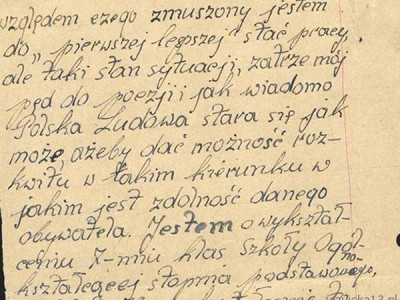 względem czego zmuszony jestem
do „pierwszej lepszej" stać pracy,
ale taki stan sytuacji, zatrze mój
pęd do poezji i jak wiadomo
Polska Ludowa stara się jak
może, ażeby dać możność roz-
kwitu w takim kierunku w
jakim jest zdolność danego
obywatela. Jestem o wykształ-
ceniu 7-miu klas Szkoły Ogól-
no-
kształcącej stopnia podstawowego,